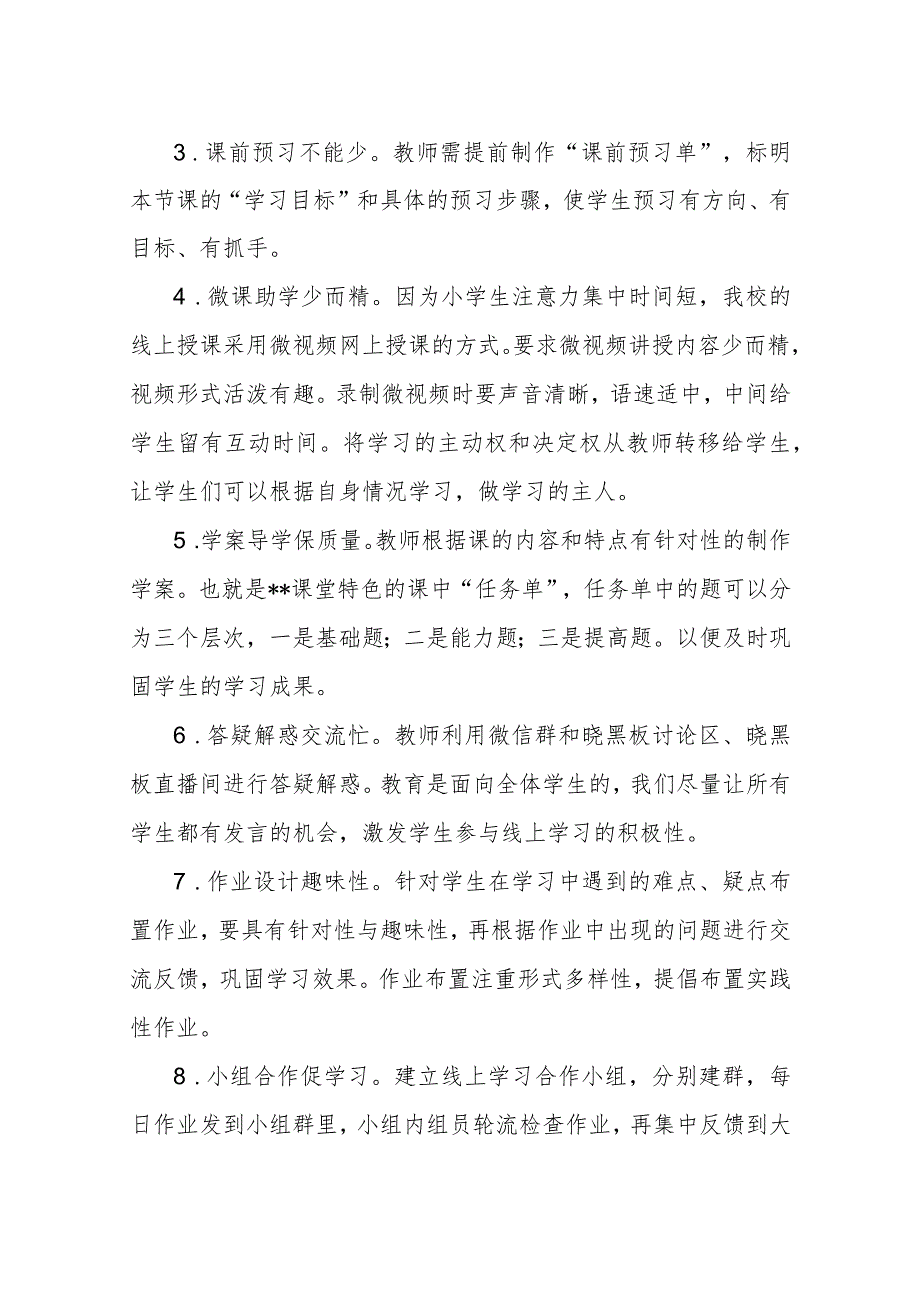 3．课前预习不能少。教师需提前制作“课前预习单”，标明
本节课的“学习目标”和具体的预习步骤，使学生预习有方向、有
目标、有抓手。
4．微课助学少而精。因为小学生注意力集中时间短，我校的
线上授课采用微视频网上授课的方式。要求微视频讲授内容少而精，
视频形式活泼有趣。录制微视频时要声音清晰，语速适中，中间给
学生留有互动时间。将学习的主动权和决定权从教师转移给学生，
让学生们可以根据自身情况学习，做学习的主人。
5．学案导学保质量。教师根据课的内容和特点有针对性的制作
学案。也就是**课堂特色的课中“任务单”，任务单中的题可以分
为三个层次，一是基础题；二是能力题；三是提高题。以便及时巩
固学生的学习成果。
6．答疑解惑交流忙。教师利用微信群和晓黑板讨论区、晓黑
板直播间进行答疑解惑。教育是面向全体学生的，我们尽量让所有
学生都有发言的机会，激发学生参与线上学习的积极性。
7．作业设计趣味性。针对学生在学习中遇到的难点、疑点布
置作业，要具有针对性与趣味性，再根据作业中出现的问题进行交
流反馈，巩固学习效果。作业布置注重形式多样性，提倡布置实践
性作业。
8．小组合作促学习。建立线上学习合作小组，分别建群，每
日作业发到小组群里，小组内组员轮流检查作业，再集中反馈到大